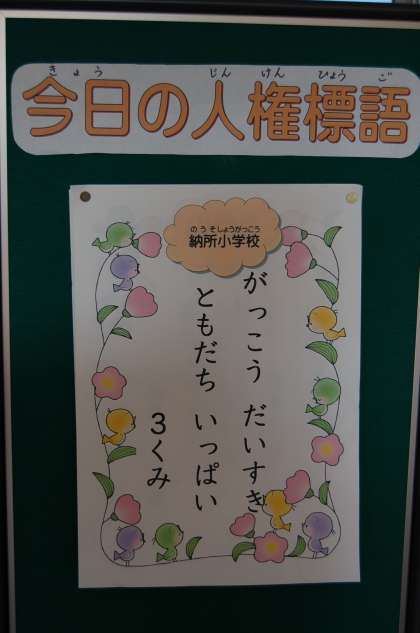 きょう じんけんひょうご
今日の人権標語
のうそしょうがっこう
納所小学校
がっこう だいすき
ともだち いっぱい
3くみ